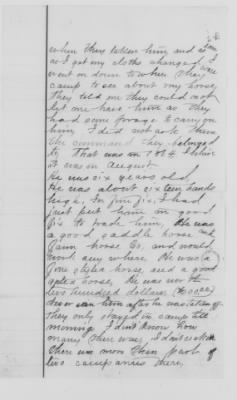 when they taken him and as soon
as I got my cloths changed I
went on down to wher they were
camp to see about my horse
they told me they could not
let me have him as they
had some forage to carry on
him, I did not ask them
the command they belonged
to. That was in 1864 I believe
it was in August.
He was six years old,
He was about sixteen hands
high. In fine fix, I had
just put him in good
fix to trade him, He was
a good saddle horse and
farm horse and would
work any where. He was a
fine styled horse, and a good
gated horse, He was worth
two hundred dollars
saw him after he was taken off
they only stayed in camp till
morning I don't know how
many there was, I don't reckon
there was more than part of
two companies there,